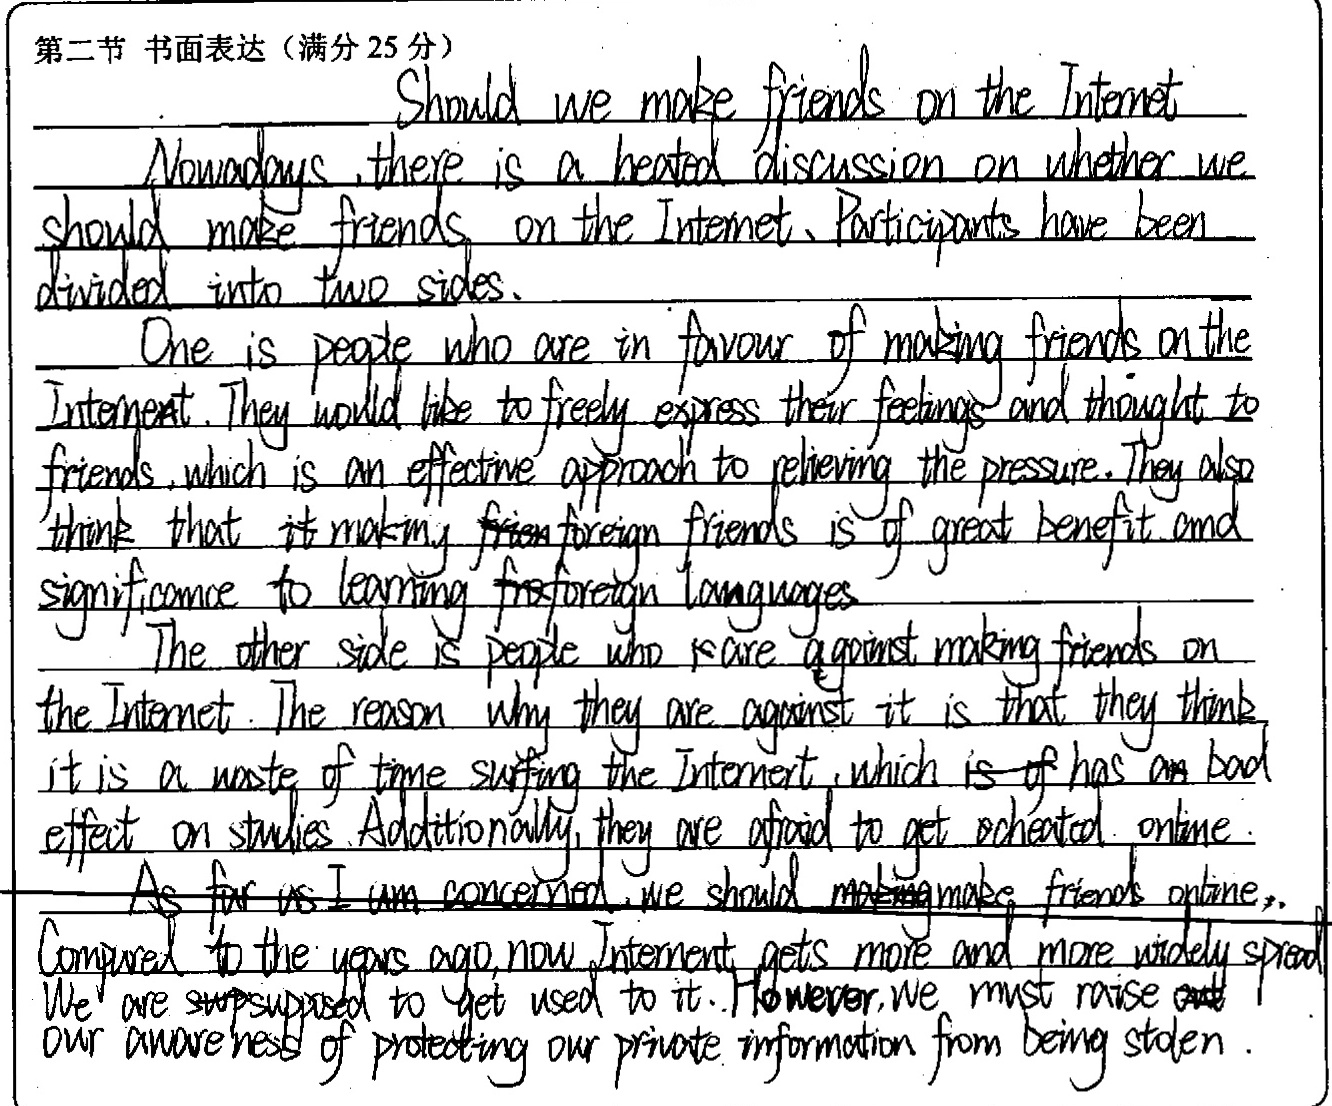 第二节 书面表达（满分 25 分）
Should we make friends on the Internet
Nowadays, there is a heated discussion on whether we
should make friends on the Internet. Participants have been
divided into two sides.
One is people who are in favour of making friends on the
Internent. They would like to freely express their feelings and thought to
friends, which is an effective approach to relieving the pressure. They also
think that it making foreign friends is of great benefit and
significance to learning foreign languages
The other side is people who are against making friends on
the Internet. The reason why they are against it is that they think
it is a waste of time surfing the Internert, which has a bad
effect on studies. Additionally, they are afraid to get cheated online.
As far as I am concerned, we should make friends online,.
Compared to the years ago, now Internent gets more and more widely spread
We are supposed to get used to it. However, we must raise
our awareness of protecting our private information from being stolen.